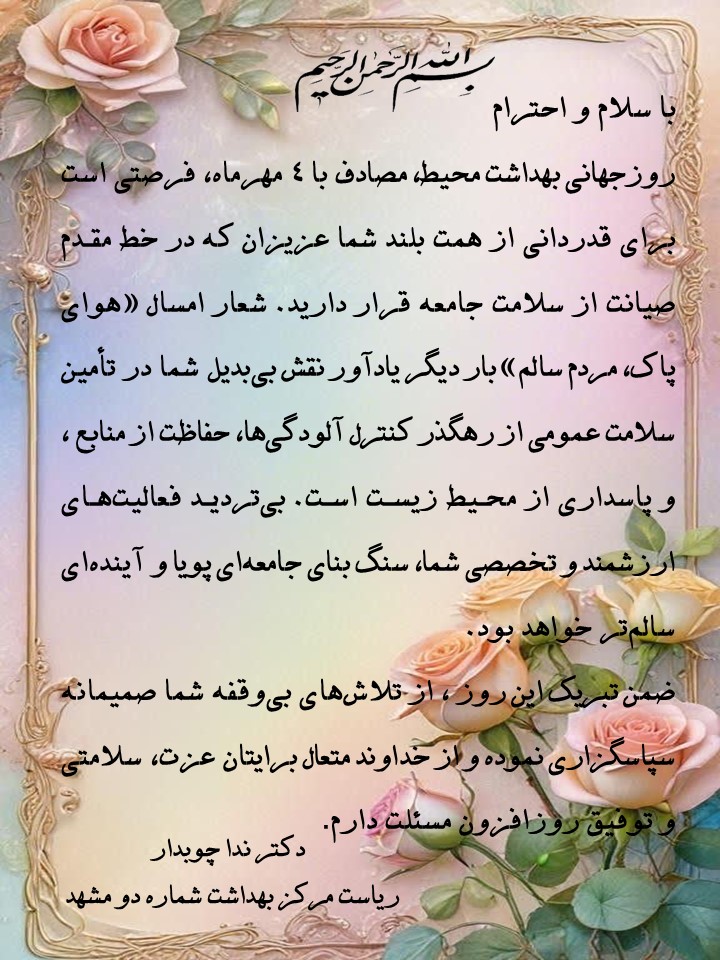 بسم الله الرحمن الرحیم
با سلام و احترام
روزجهانی بهداشت محیط، مصادف با ٤ مهرماه، فرصتی است
برای قدردانی از همت بلند شما عزیزان که در خط مقدم
صیانت از سلامت جامعه قرار دارید. شعار امسال «هوای
پاک، مردم سالم» بار دیگر یادآور نقش بی‌بدیل شما در تأمین
سلامت عمومی از رهگذر کنترل آلودگی‌ها، حفاظت از منابع ،
و پاسداری از محیط زیست است. بی‌تردید فعالیت‌های
ارزشمند و تخصصی شما، سنگ بنای جامعه‌ای پویا و آینده‌ای
سالم‌تر خواهد بود.
ضمن تبریک این روز ، از تلاش‌های بی‌وقفه شما صمیمانه
سپاسگزاری نموده و از خداوند متعال برایتان عزت، سلامتی
و توفیق روزافزون مسئلت دارم.
دکتر ندا چوبدار
ریاست مرکز بهداشت شماره دو مشهد